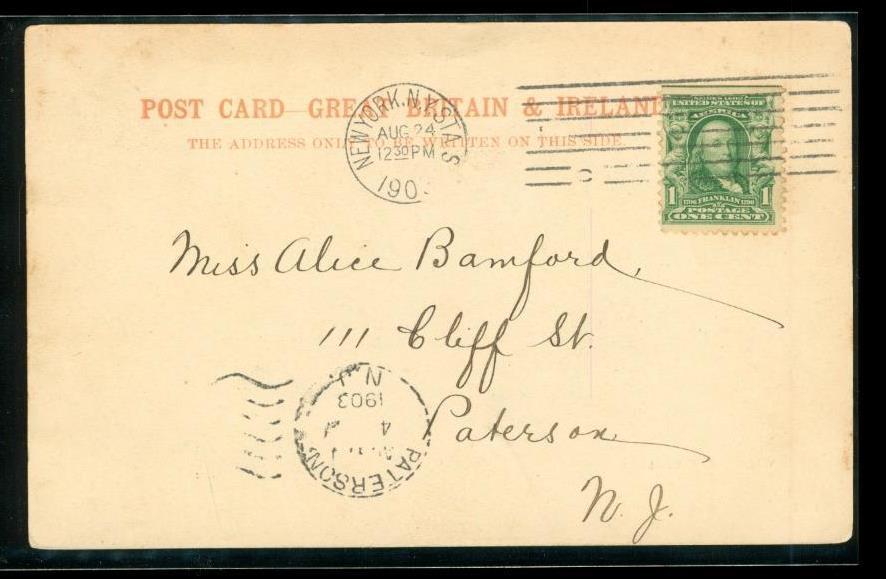 POST CARD—GREAT BRITAIN & IRELAND
THE ADDRESS ONLY TO BE WRITTEN ON THIS SIDE.
NEW YORK, N.Y. STA. S
AUG 24
12 30 PM
190
UNITED STATES OF
AMERICA
1 FRANKLIN 1
POSTAGE
ONE CENT
Miss Alice Bamford,
111 Cliff St.
Paterson
N. J.
PATERSON,
4
1903
N. J.